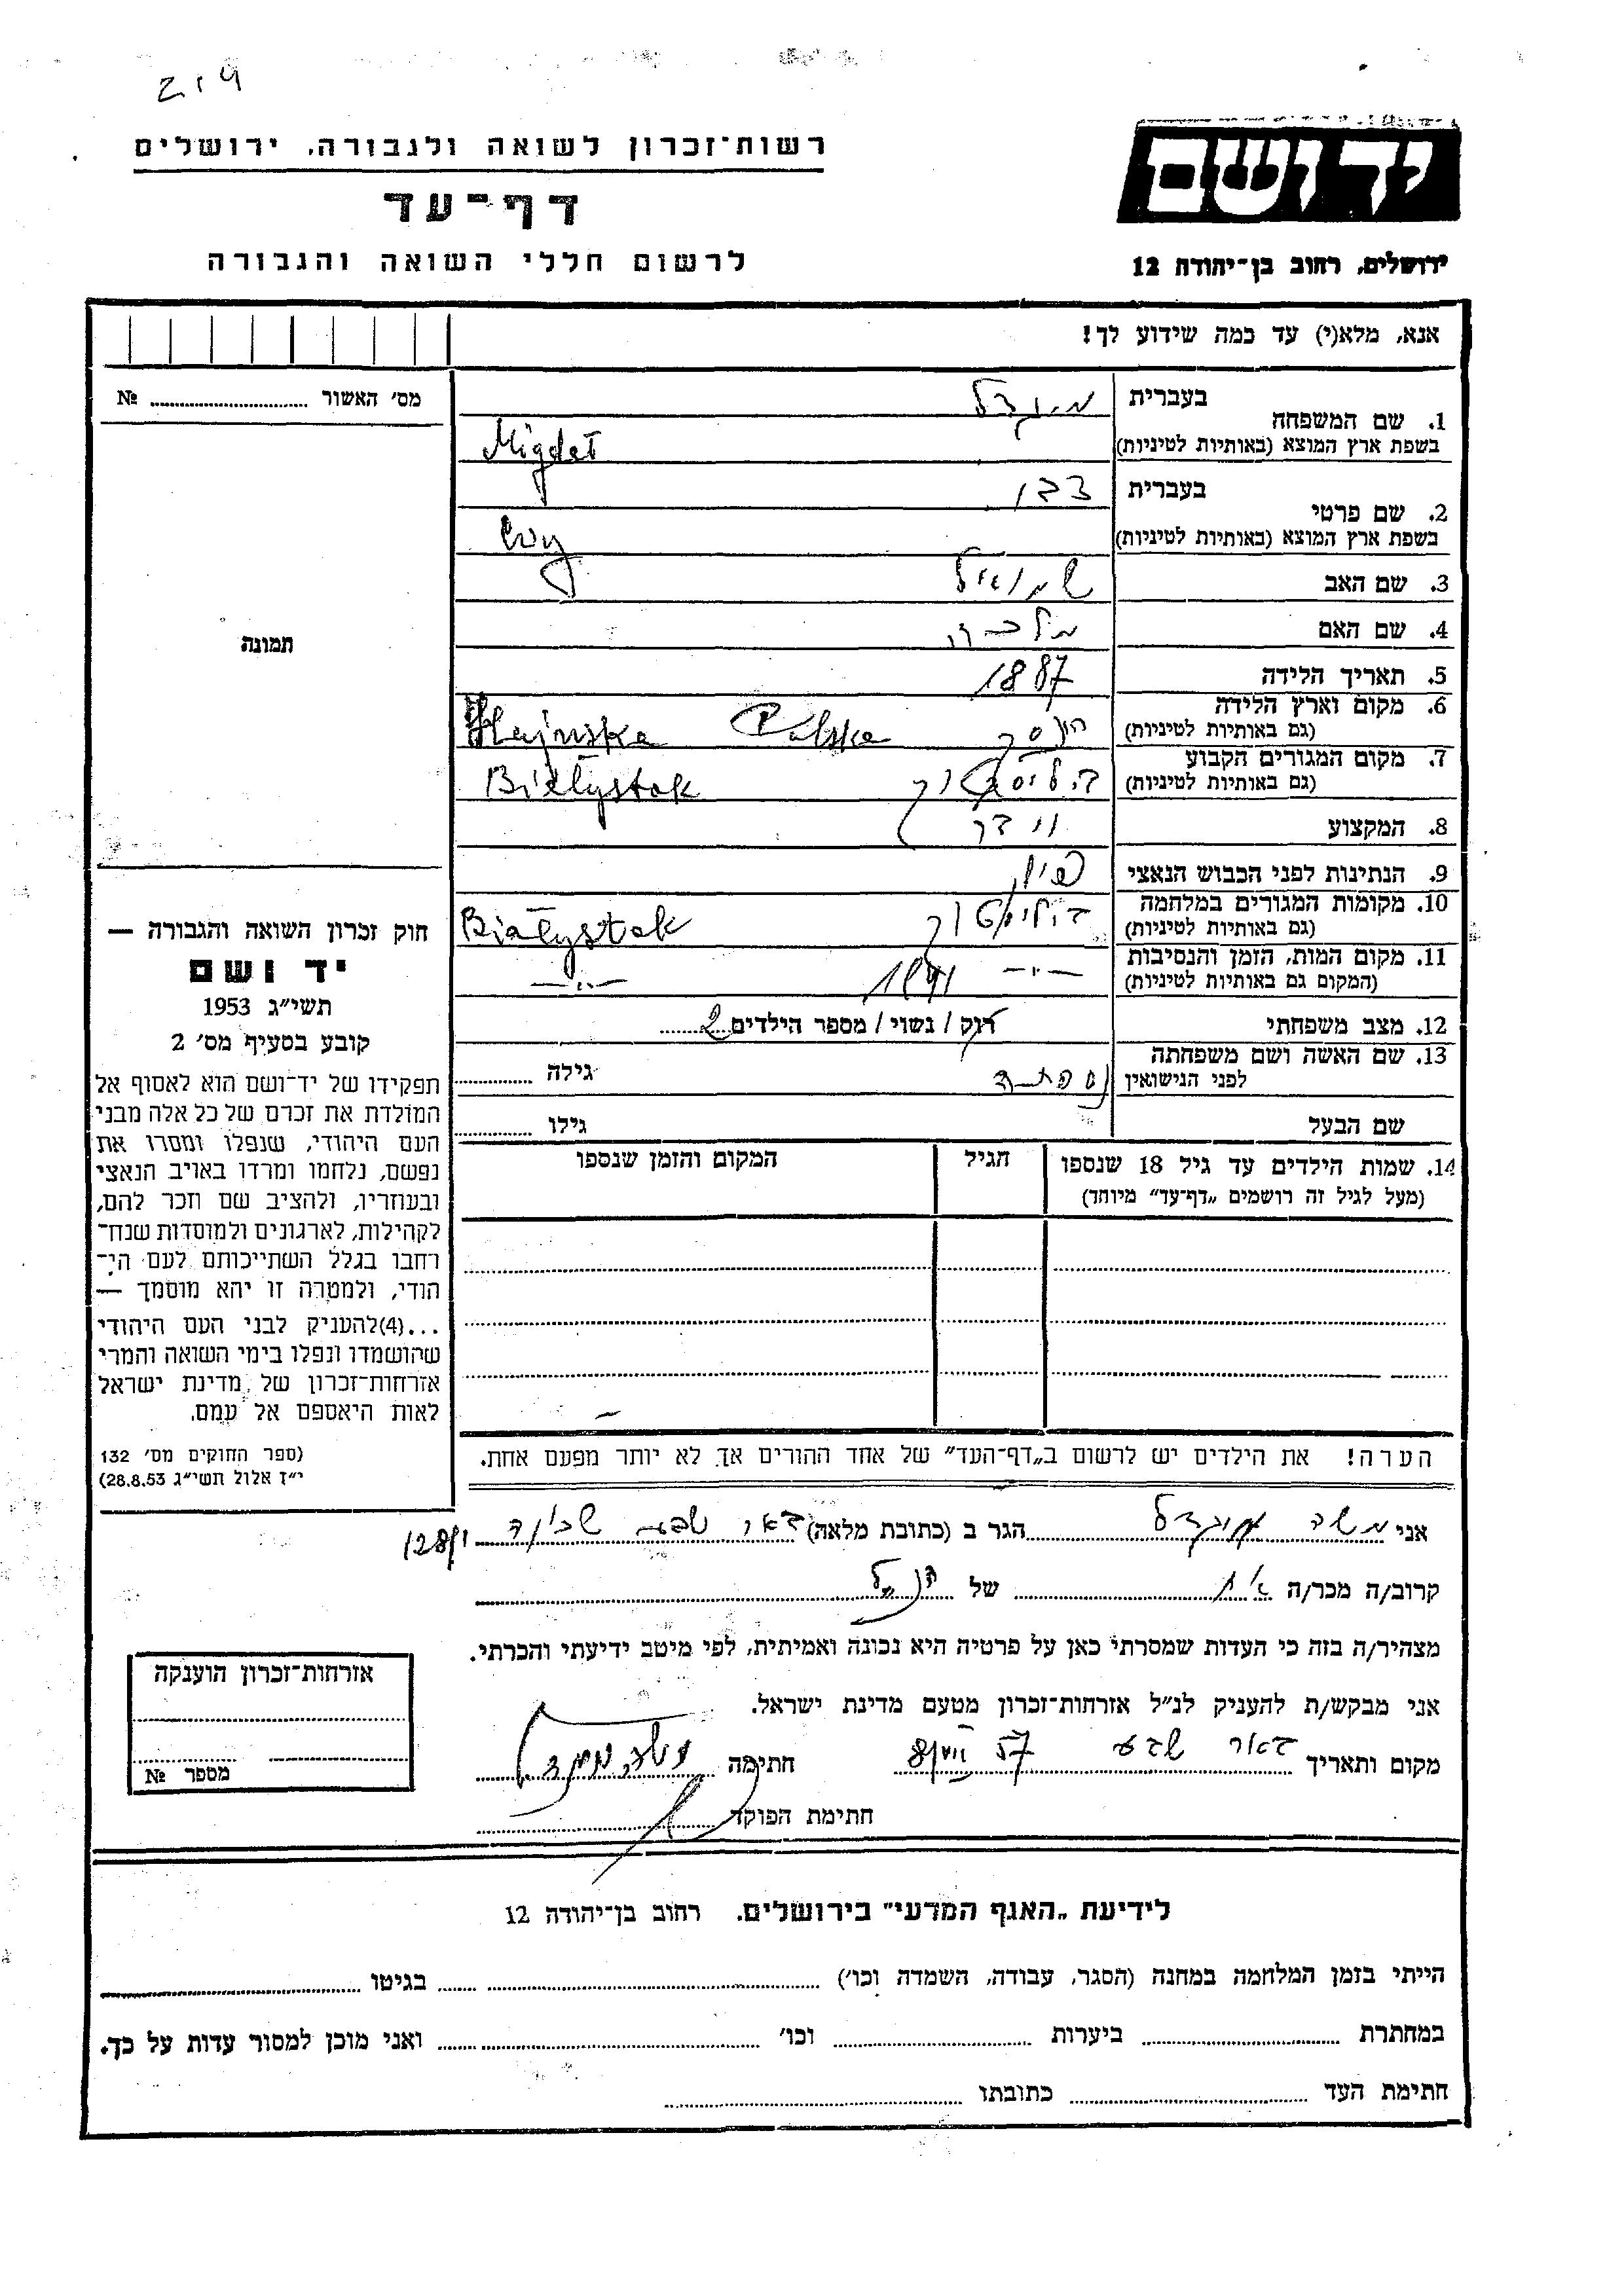 219
רשות־זכרון לשואה ולגבורה, ירושלים
דף־עד
לרשום חללי השואה והגבורה
יד ושם
ירושלים, רחוב בן־יהודה 12
אנא, מלא(י) עד כמה שידוע לך!
מס׳ האשור № 
1. שם המשפחה
בעברית מיגדל
בשפת ארץ המוצא (באותיות לטיניות) Migdał
2. שם פרטי
בעברית
בשפת ארץ המוצא (באותיות לטיניות)
3. שם האב שמואל
4. שם האם מלכה
5. תאריך הלידה 1887
6. מקום וארץ הלידה
(גם באותיות לטיניות) Polska
7. מקום המגורים הקבוע
(גם באותיות לטיניות) Białystok
8. המקצוע
9. הנתינות לפני הכבוש הנאצי
10. מקומות המגורים במלחמה
(גם באותיות לטיניות) Białystok
11. מקום המות, הזמן והנסיבות
(המקום גם באותיות לטיניות) —"— 1941 —"—
12. מצב משפחתי רוק / נשוי / מספר הילדים 2
13. שם האשה ושם משפחתה
לפני הנישואין גילה
שם הבעל גילו
14. שמות הילדים עד גיל 18 שנספו
(מעל לגיל זה רושמים „דף־עד” מיוחד)
הגיל
המקום והזמן שנספו
הערה! את הילדים יש לרשום ב„דף־העד” של אחד ההורים אך לא יותר מפעם אחת.
תמונה
חוק זכרון השואה והגבורה —
יד ושם
תשי״ג 1953
קובע בסעיף מס׳ 2
תפקידו של יד־ושם הוא לאסוף אל
המולדת את זכרם של כל אלה מבני
העם היהודי, שנפלו ומסרו את
נפשם, נלחמו ומרדו באויב הנאצי
ובעוזריו, ולהציב שם וזכר להם,
לקהילות, לארגונים ולמוסדות שנח־
רבו בגלל השתייכותם לעם הי־
הודי, ולמטרה זו יהא מוסמך —
...(4) להעניק לבני העם היהודי
שהושמדו ונפלו בימי השואה והמרי
אזרחות־זכרון של מדינת ישראל
לאות היאספם אל עמם.
(ספר החוקים מס׳ 132
י״ז אלול תשי״ג 28.8.53)
אני משה מיגדל הגר ב (כתובת מלאה) באר שבע
קרוב/ה מכר/ה של
מצהיר/ה בזה כי העדות שמסרתי כאן על פרטיה היא נכונה ואמיתית, לפי מיטב ידיעתי והכרתי.
אני מבקש/ת להעניק לנ״ל אזרחות־זכרון מטעם מדינת ישראל.
מקום ותאריך באר שבע חתימה
חתימת הפוקד
אזרחות־זכרון הוענקה
מספר №
לידיעת „האגף המדעי” בירושלים, רחוב בן־יהודה 12
הייתי בזמן המלחמה במחנה (הסגר, עבודה, השמדה וכו׳) בגיטו
במחתרת ביערות וכו׳ ואני מוכן למסור עדות על כך.
חתימת העד כתובתו